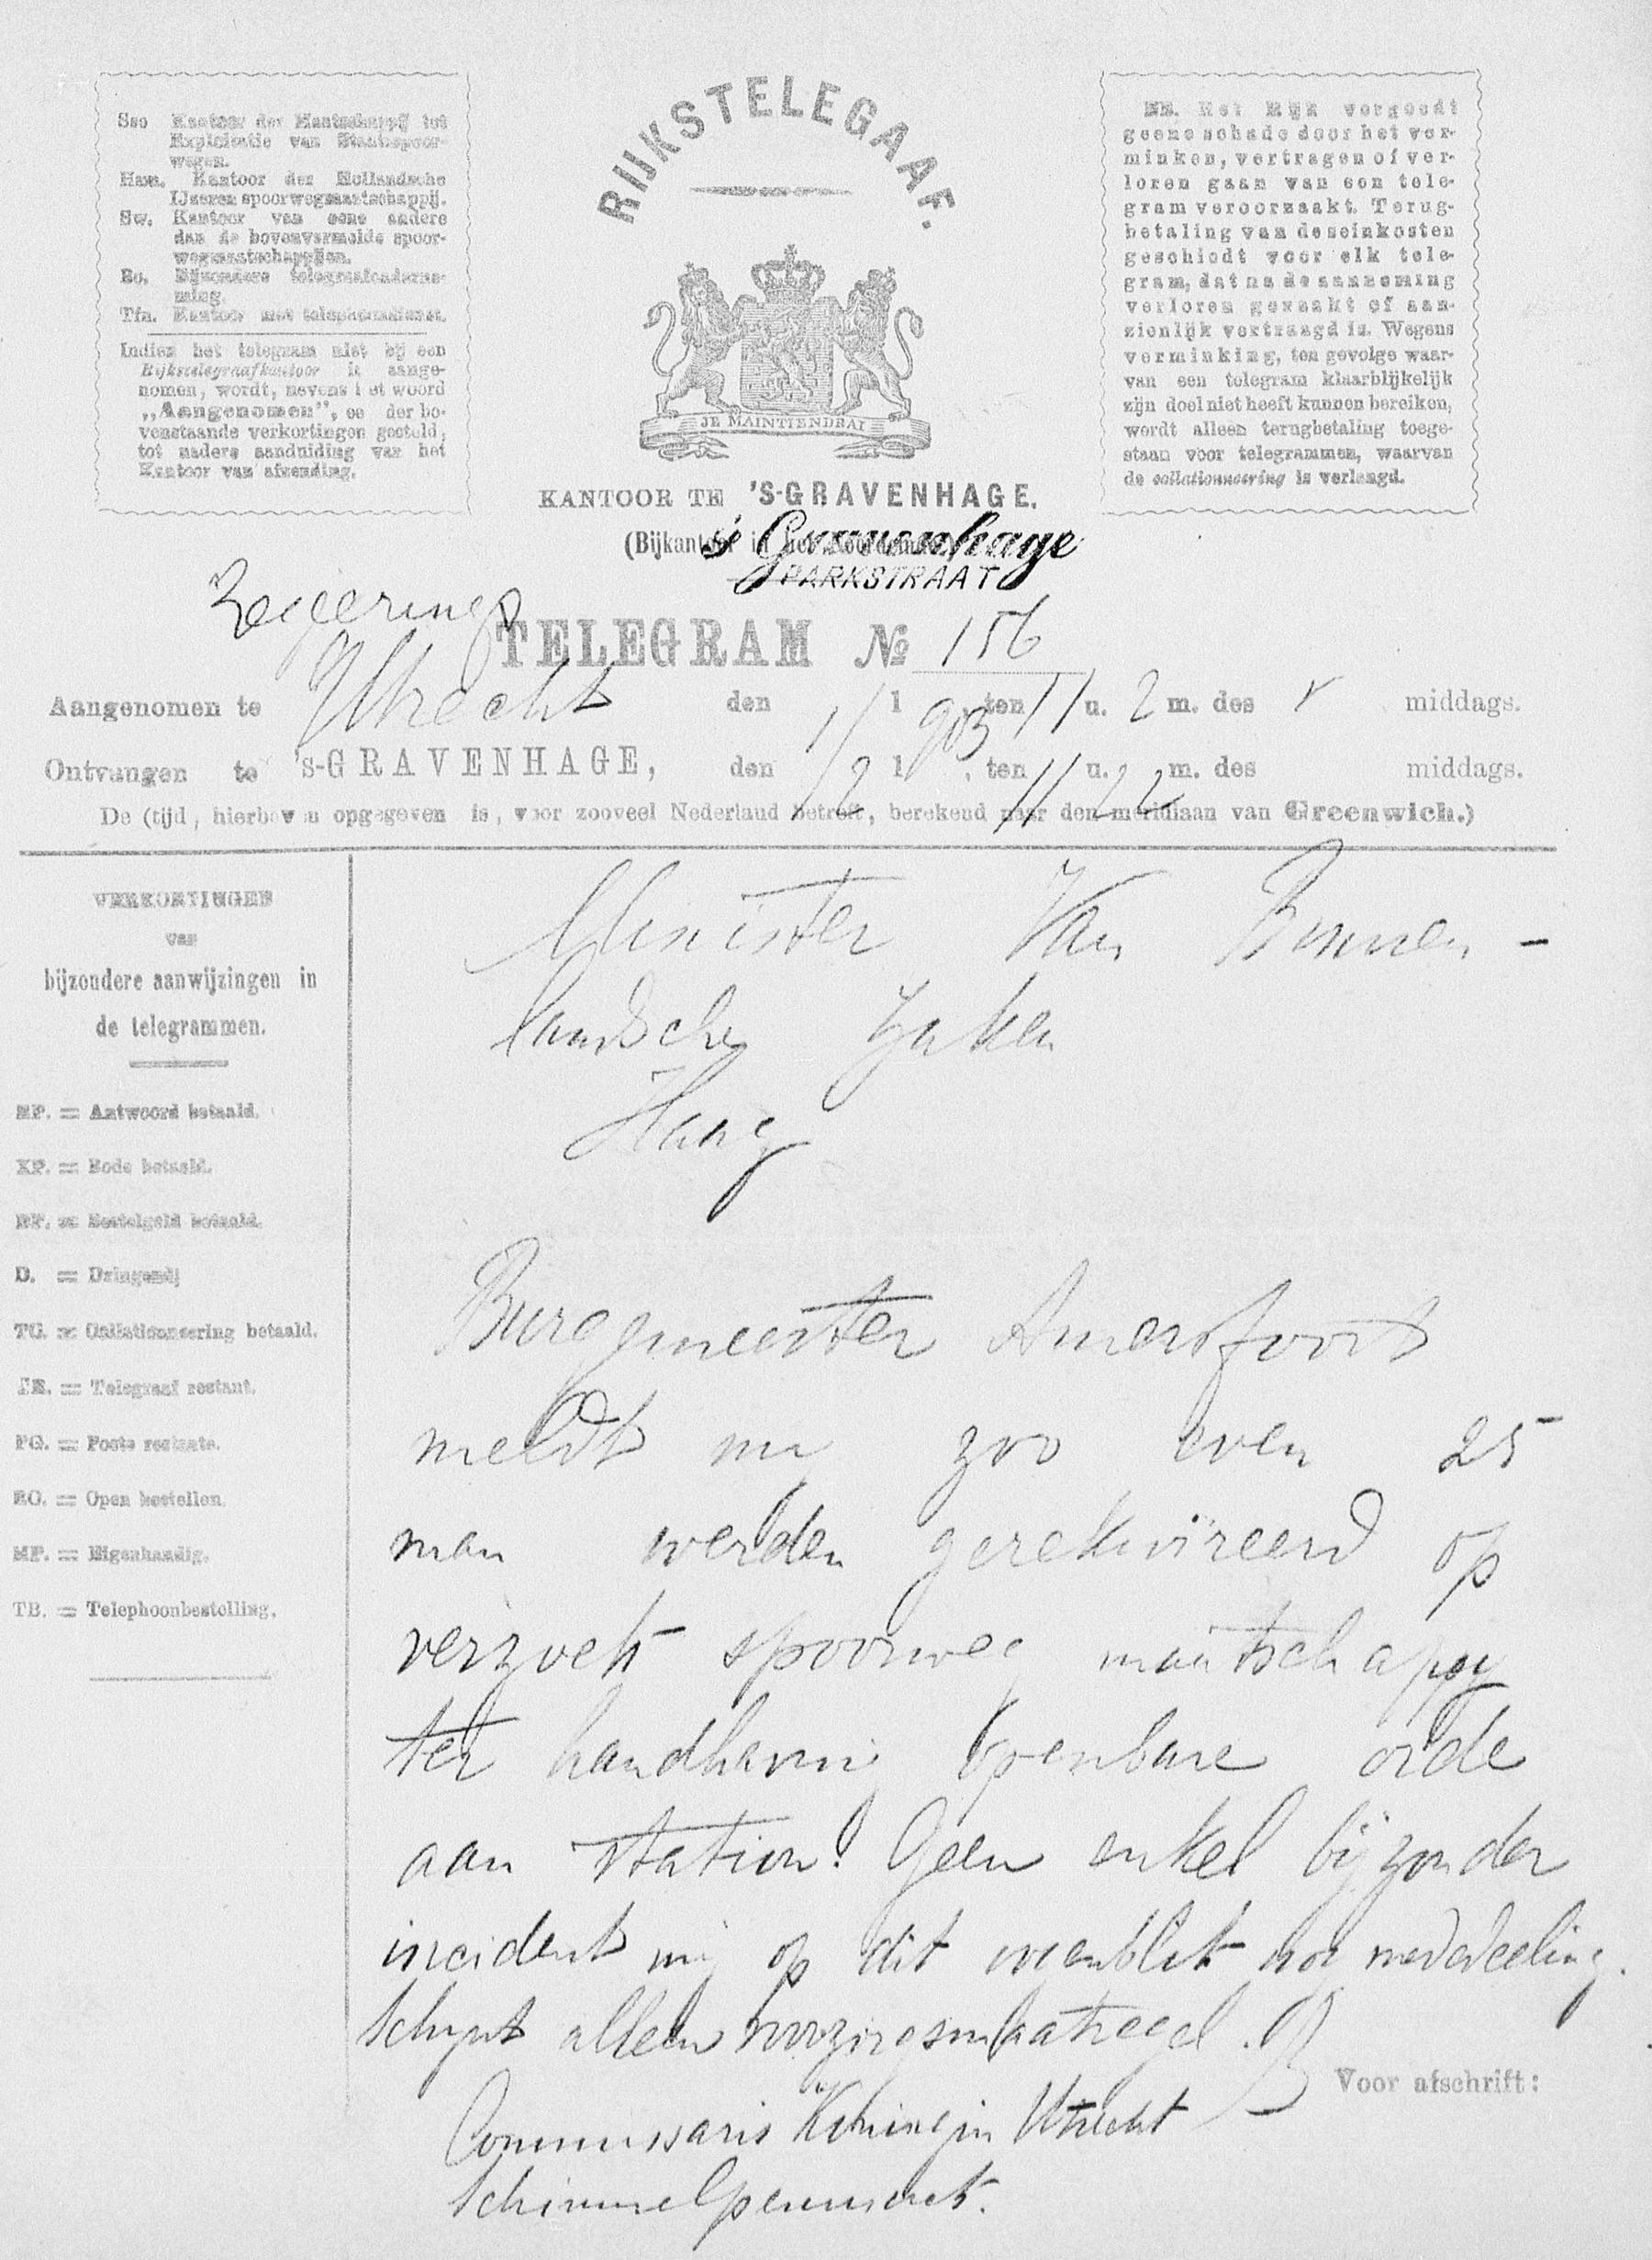 Sso Kantoor der Maatschappij tot
Exploitatie van Staatsspoor-
wegen.
Hsm. Kantoor der Hollandsche
IJzeren spoorwegmaatschappij.
Sw. Kantoor van eene andere
dan de bovenvermelde spoor-
wegmaatschappijen.
Bo. Bijzondere telegraafonderne-
ming.
Tfn. Kantoor met telephoondienst.
Indien het telegram niet bij een
Rijkstelegraafkantoor is aange-
nomen, wordt, nevens het woord
„Aangenomen”, ee der bo-
venstaande verkortingen gesteld,
tot nadere aanduiding van het
Kantoor van afzending.
RIJKSTELEGAAF.
JE MAINTIENDRAI
KANTOOR TE 'S-GRAVENHAGE.
(Bijkantoor in het
's Gravenhage
PARKSTRAAT
NB. Het Rijk vergoedt
geene schade door het ver-
minken, vertragen of ver-
loren gaan van een tele-
gram veroorzaakt. Terug-
betaling van de seinkosten
geschiedt voor elk tele-
gram, dat na de aanneming
verloren geraakt of aan-
zienlijk vertraagd is. Wegens
verminking, ten gevolge waar-
van een telegram klaarblijkelijk
zijn doel niet heeft kunnen bereiken,
wordt alleen terugbetaling toege-
staan voor telegrammen, waarvan
de collationneering is verlangd.
Regerings
TELEGRAM No 156
Aangenomen te Utrecht den 1/ 1903, ten 11 u. 2 m. des v middags.
Ontvangen te 's-GRAVENHAGE, den 1/2 1 , ten 11 u. 22 m. des middags.
De (tijd, hierboven opgegeven is, voor zooveel Nederland betreft, berekend naar den meridiaan van Greenwich.)
VERKORTINGEN
van
bijzondere aanwijzingen in
de telegrammen.
RP. = Antwoord betaald.
XP. = Bode betaald.
BP. = Bestelgeld betaald.
D. = Dringend
TC. = Collationneering betaald.
TR. = Telegraaf restant.
PG. = Poste restante.
RO. = Open bestellen.
MP. = Eigenhandig.
TB. = Telephoonbestelling.
Minister Van Binnen-
landsche Zaken
Haag
Burgemeester Amersfoort
meldt my zoo even 25
man werden gerekwireerd op
verzoek spoorweg maatschappy
ter handhaving openbare orde
aan station. Geen enkel bijzonder
incident mij op dit oogenblik nog mededeeling.
Schynt alleen voorzorgsmaatregel.
Commissaris Koningin Utrecht
Schimmelpenninck.
Voor afschrift: